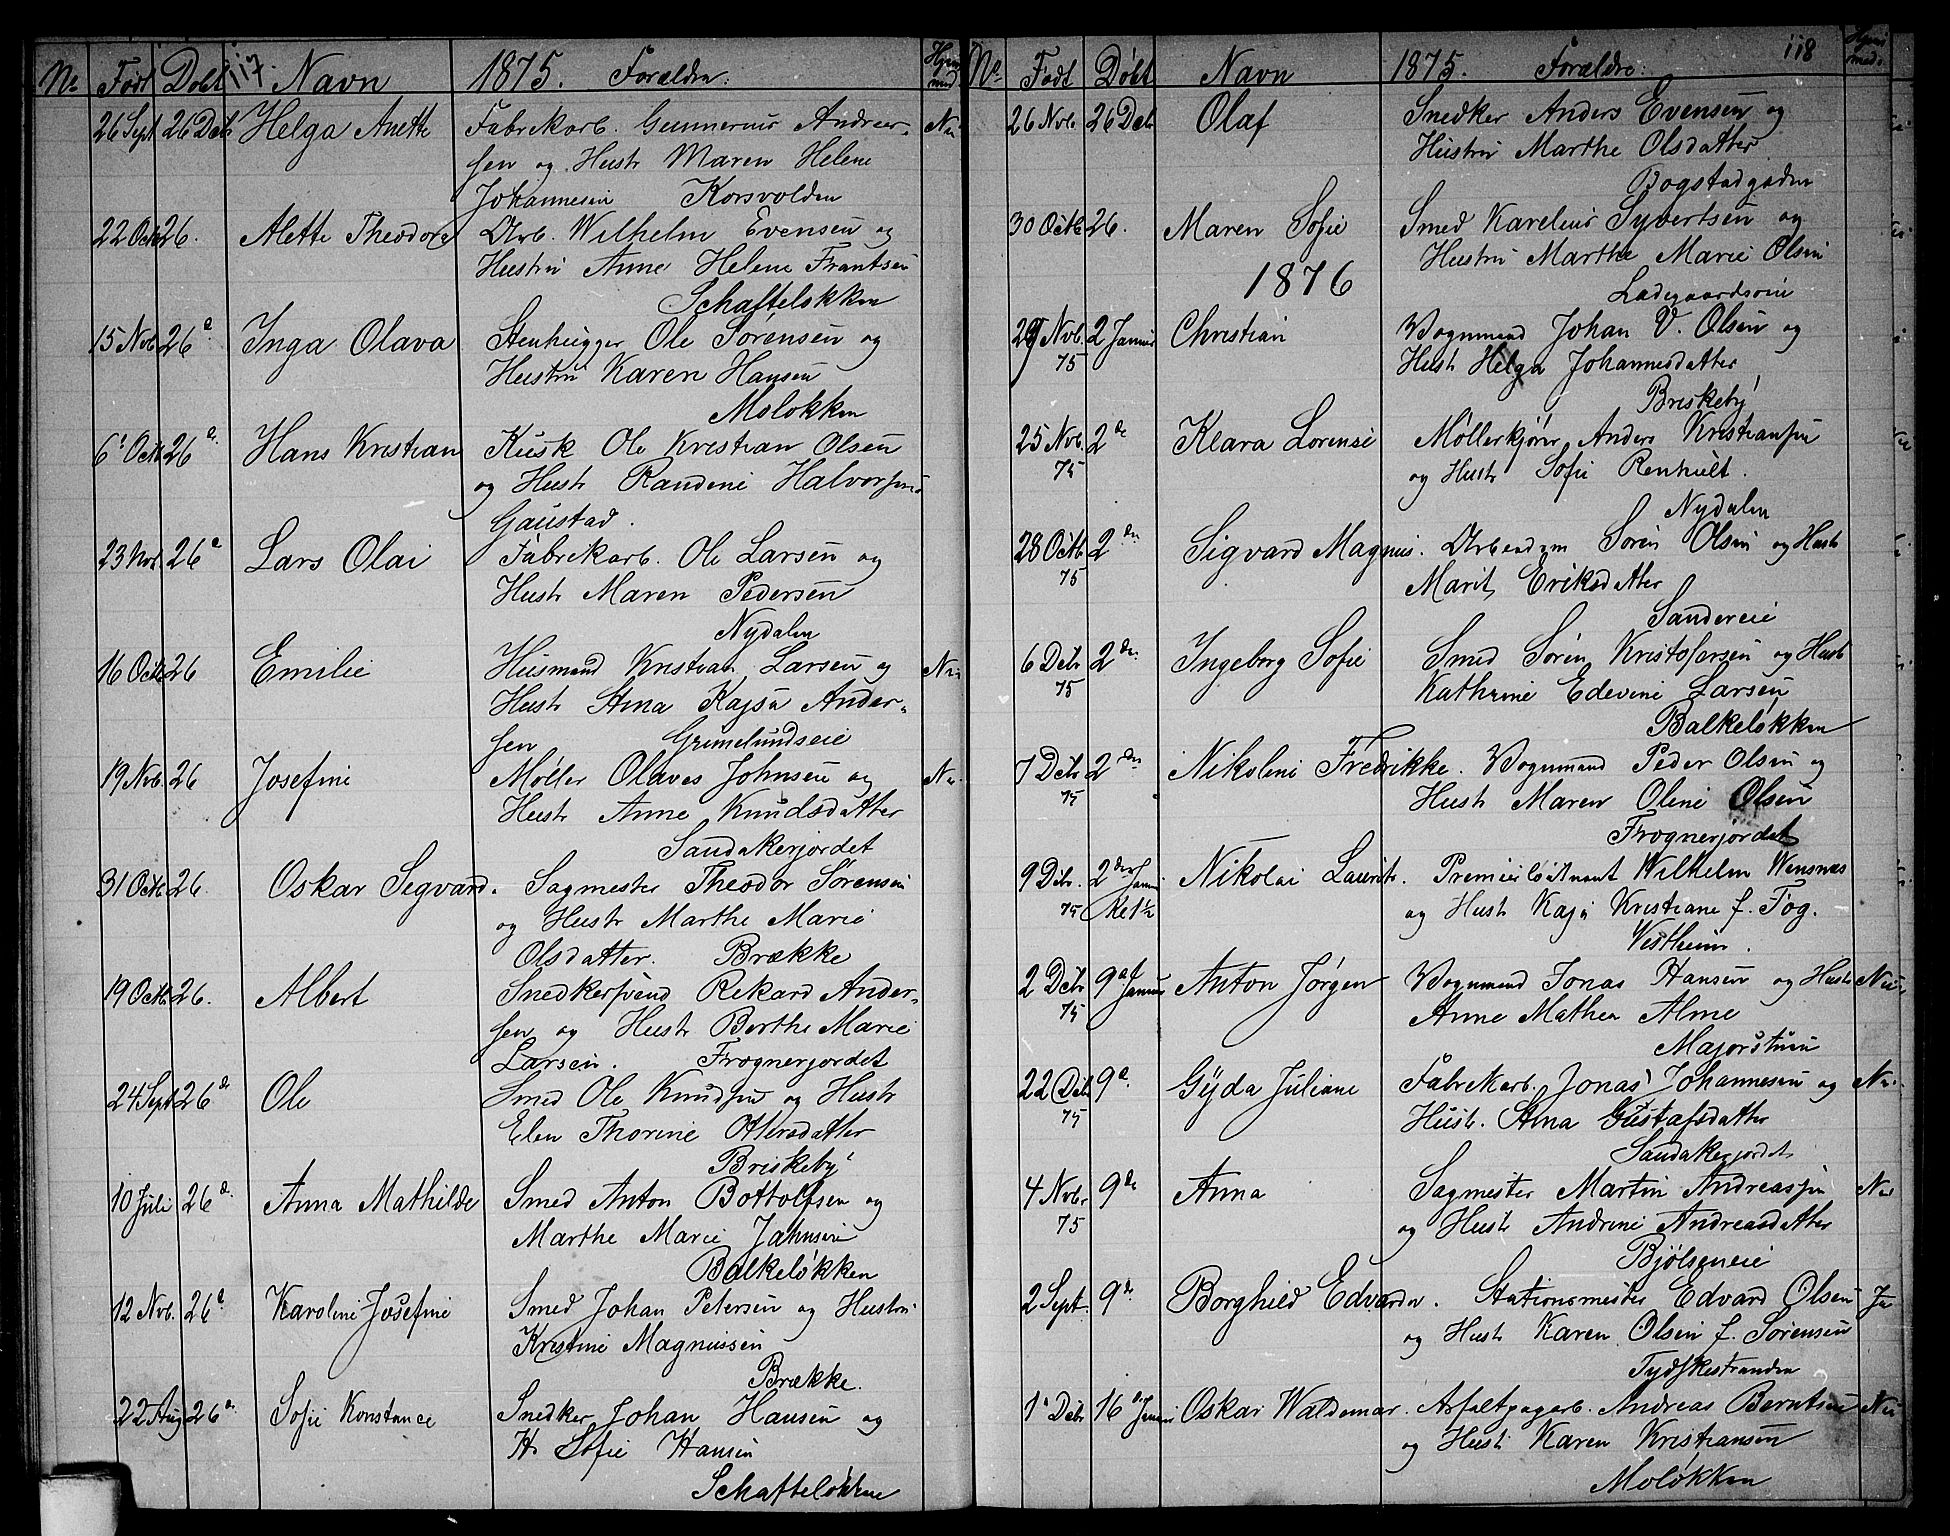 No Født Døbt 117. Navn 1875. Forældre: Hjem med
26 Sept 26 Dcbr Helga Anette Fabrikarb. Gunnerius Andrea-
sen og Hustr Maren Helene
Johannesen Korsvolden
22 Octb 26. Alette Theodore Arb. Wilhelm Evensen og
Hustru Anne Helene Frantsen
Schafteløkken
15 Nvb 26d Inga Olava Stenhugger Ole Sörensen og
Hustru Karen Hansen
Moløkken
6t Octb 26de Hans Kristian Kusk Ole Kristian Olsen
og Hustr Randine Halvorsen
Gaustad.
23 Nov. 26d Lars Olai Fabrikarb. Ole Larsen og
Hustr Maren Pedersen
Nydalen
16 Octb 26 Emilie Husmand Kristian Larsen og Nei
Hustr Stina Kajsa Ander-
sen Grimelundseie
19 Nvb. 26 Josefine Møller Olaves Johnsen og Nei
Hustr Anne Knudsdatter
Sandakerjordet
31 Octb 26. Oskar Sigvard. Sagmester Theodor Sörensen
og Hustr Marthe Marie
Olsdatter. Brække
19 Octb 26. Albert Snedkersvend Rikard Ander-
sen og Hustr Berthe Marie
Larsen. Frognerjordet
24 Sept 26de Ole Smed Ole Knudsen og Hustr
Elen Thorine Ottersdatter
Briskeby
10 Juli 26d. Anna Mathilde Smed Anton Bottolfsen og
Marthe Marie Jahnsen
Balkeløkken
12 Nvb. 26d Karoline Josefine Smed Johan Petersen og Hustru
Kristine Magnussen
Brække.
22 Aug 26d Sofie Konstance Snedker Johan Hansen og
H. Sofie Hansen
Schafteløkken
No Født Døbt Navn 1875. Forældre: 118 Hjem med
26 Nvb. 26 Dcbr Olaf Snedker Anders Evensen og
Hustru Marthe Olsdatter
Bogstadgaden
30 Octb 26. Maren Sofie Smed Karelius Syvertsen og
Hustru Marthe Marie Olsen
1876 Ladegaardsøen
29 Nvb. 2 Januar Christian Vognmand Johan V. Olsen og
75 Hust Helga Johannesdatter
Briskeby
25 Nvb. 2de Klara Lorense Møllerkjører Anders Kristiansen
75 og Hustr Sofie Renhult.
Nydalen
28 Octb 2den Sigvard Magnus. Arbeidsm Sören Olsen og Hustr
75 Marit Eriksdatter
Sandereie
6 Dcbr 2den Ingeborg Sofie Smed Sören Kristofersen og Hustr
75 Kathrine Edevine Larsen
Balkeløkken
7 Dcbr 2den Nikoline Fredrikke. Vognmand Peder Olsen og
75 Hustr Maren Oline Olsen
Frognerjordet
9 Dcbr. 2den Januar Nikolai Laurits. Premierløitnant Wilhelm Wensnæs
75 Kl 1½ og Hustr Kaja Kristiane f. Fog.
Vestheim.
2 Dcbr 9de Januar Anton Jørgen Vognmand Jonas Hansen og Hustr Nei
75 Anne Mathea Alme
Majorstuen
22 Dcbr 9d. Gyda Juliane Fabrikarb. Jonas Johannesen og Nei.
75 Hustr. Stina Gustafsdatter
Sandakerjordet
4 Nvbr 9de Anna Sagmester Martin Andreasen Nei
75 og Hustr Andrine Andreasdatter
Bjølseneie
2 Sept. 9de Borghild Edvarda. Stationsmester Edvard Olsen Ja
og Hustr Karen Olsen f. Sörensen
Tydskestranden
1d Dcbr 16de Januar Oskar Waldemar. Asfaltpagarb. Andreas Berntsen Nei
og Hustr Karen Kristiansen
Moløkken